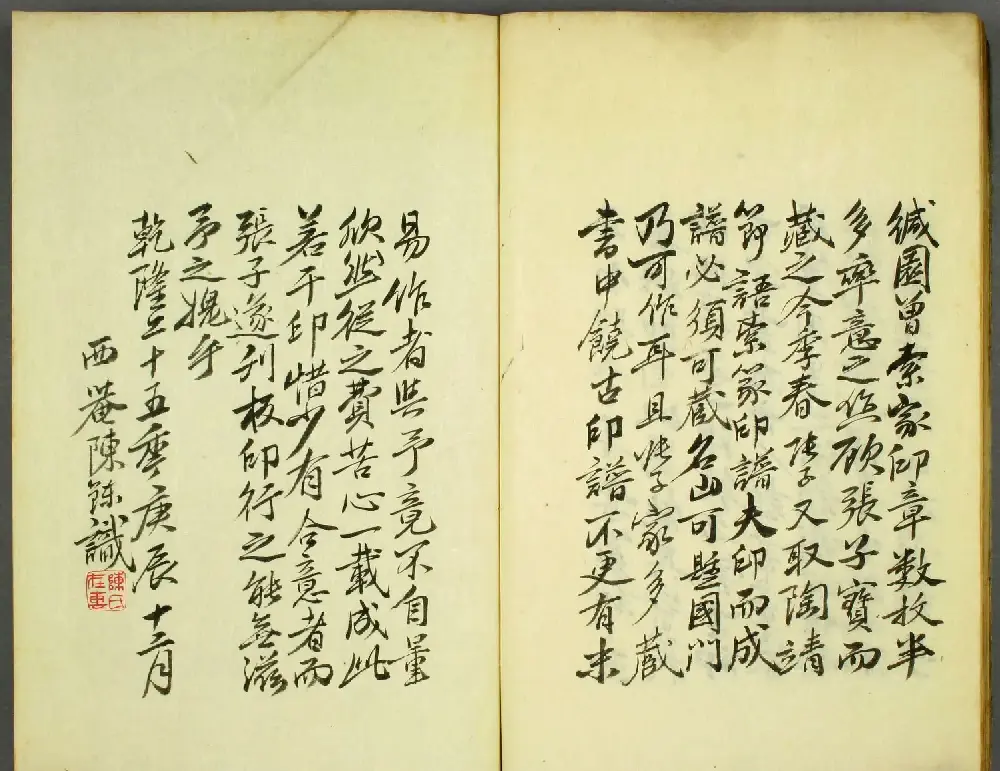 缄園曾索家印章数枚半
多率意之然顾張子寶而
藏之今季春張子又取陶靖
節語索篆印譜夫印而成
譜必須可藏名山可懸國門
乃可作耳且張子家多藏
書中饒古印譜不更有未
易作者與予竟不自量
欣然從之費苦心一載成此
若干印惜少有合意者而
張子遂刋板印行之能無滋
予之媿乎
乾隆二十五秊庚辰十二月
西菴陳鍊識
陳氏